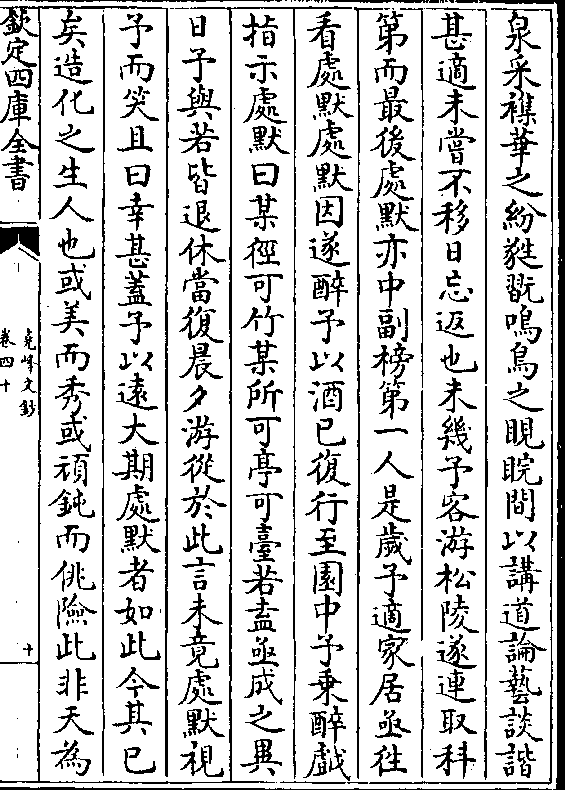 泉采襍華之紛蕤翫鳴鳥之睍睆間以講道論藝談諧
甚適未嘗不移日忘返也未幾予客游松陵遂連取科
第而最後處默亦中副榜第一人是歲予適家居亟徃
看處默處默因遂醉予以酒已復行至園中予乗醉戯
指示處默曰某徑可竹某所可亭可臺若盍亟成之異
日予與若皆退休當復晨夕游從於此言未竟處默視
予而笑且曰幸甚蓋予以遠大期處默者如此今其已
矣造化之生人也或美而秀或頑鈍而佻險此非天為
欽定四庫全書
堯峰文鈔
卷四十
十